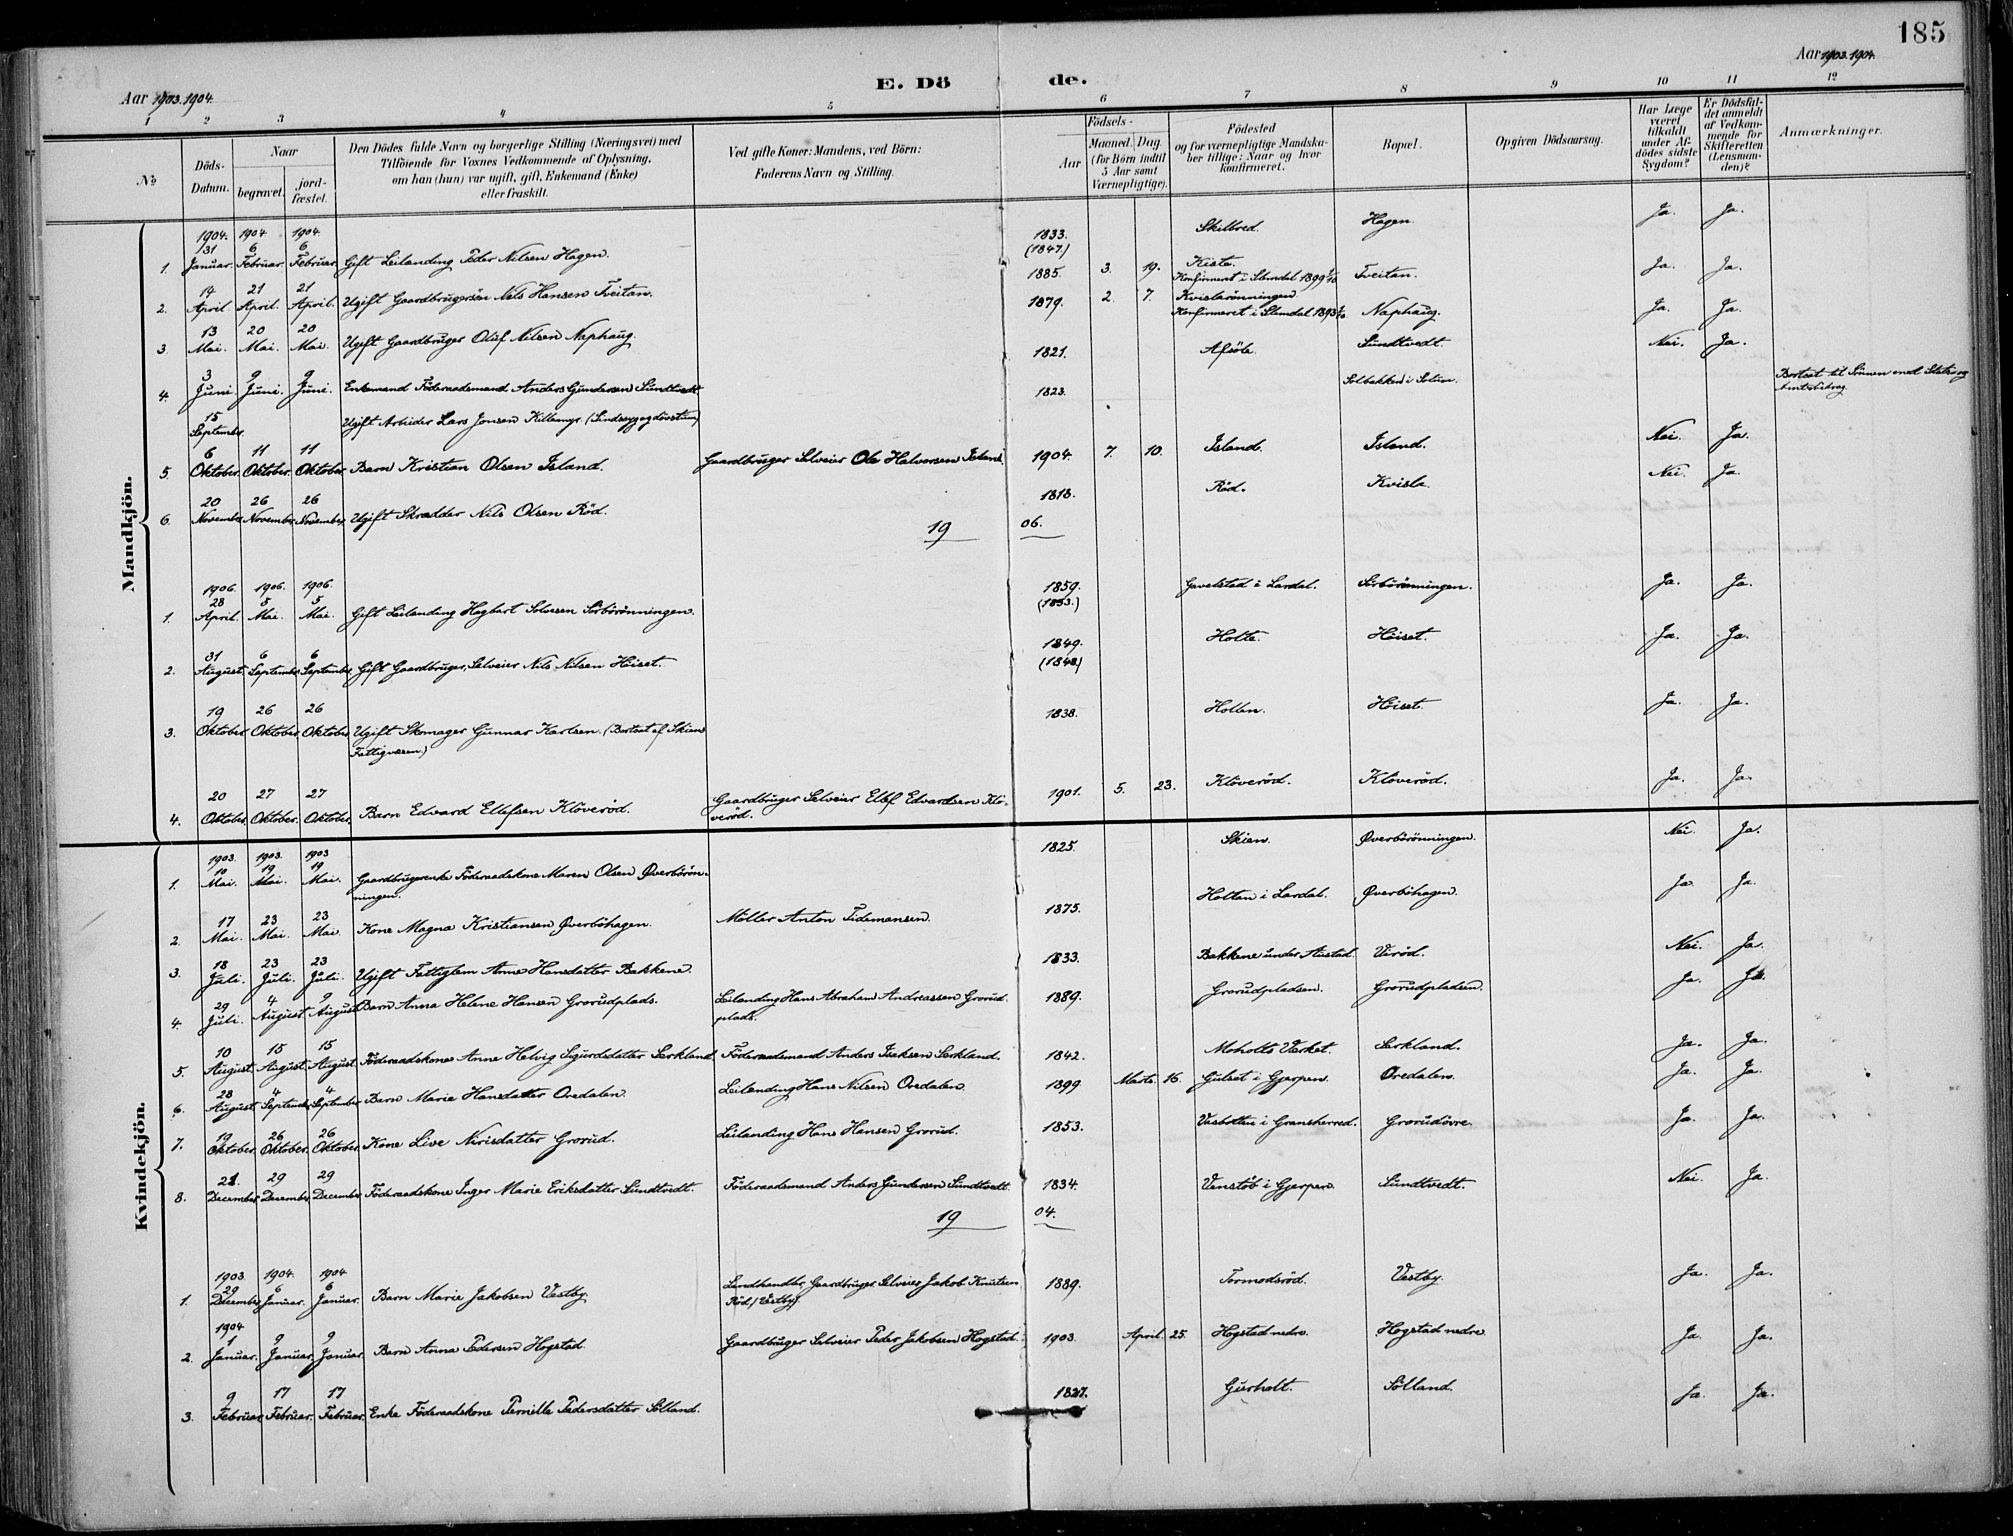 185
Aar 1903. 1904.
E. Dö de.
Aar 1903. 1904.
1 2 3 4 5 6 7 8 9 10 11 12
No.
Döds-Datum.
Naar
begravet.
jord-fæstet.
Den Dödes fulde Navn og borgerlige Stilling (Næringsvei) med
Tilföiende for Voxnes Vedkommende af Oplysning,
om han (hun) var ugift, gift, Enkemand (Enke)
eller fraskilt.
Ved gifte Koner: Mandens, ved Börn:
Faderens Navn og Stilling.
Födsels-
Aar
Maaned. Dag.
(for Börn indtil
5 Aar samt
Værnepligtige).
Födested
og for værnepligtige Mandska-
ber tillige: Naar og hvor
konfirmeret.
Bopæl.
Opgiven Dödsaarsag.
Har Læge
været
tilkaldt
under Af-
dödes sidste
Sygdom?
Er Dödsfal-
det anmeldt
af Vedkom-
mende for
Skifteretten
(Lensman-
den)?
Anmærkninger.
Mandkjön.
1904. 1904 1904.
1. 31 Januar. 6 Februar. 6 Februar. Gift Leilænding Peder Nilsen Hagen. 1833. (1847.) Skilbred. Hagen. Ja. Ja.
2. 14 April. 21 April. 21 April. Ugift Gaardbrugersön Nils Hansen Tveitan. 1885. 3. 19. Kiste. Konfirmeret i Slemdal 1899 Tveitan. Ja. Ja.
3. 13 Mai. 20 Mai. 20 Mai Ugift Gaardbruger Oluf Nilsen Naphaug. 1879. 2. 7. Kvislarönningen Konfirmeret i Slemdal 1893 Naphaug. Ja. Ja.
4. 3 Juni 9 Juni. 9 Juni. Enkemand Föderaadsmand Anders Gundersen Sundtvedt 1821. Sundtvedt. Nei. Ja.
15 September. Ugift Arbeider Lars Jonsen 1823. Solbakken i Solum. Bortsat til Sönnen med Stats og Amtsbidrag
5. 6 Oktober. 11 Oktober. 11 Oktober Barn Kristian Olsen Island. Gaardbruger Selveier Ole Halvorsen Island. 1904. 7. 10. Island. Island. Nei. Ja.
6. 20 November. 26 November. 26 November. Ugift Skrædder Nils Olsen Röd. 1818. Röd. Kvisla. Nei. Ja.
19 06.
1906. 1906. 1906.
1. 28 April. 5 Mai. 5 Mai. Gift Leilænding Hagbart Solvesen Sörbörönningen. 1859. (1853.) Gavelstad i Lardal. Sörbörönningen. Ja. Ja.
2. 31 August. 6 September. 6 September. Gift Gaardbruger, Selveier Nils Nilsen Höiset. 1849. (1848) Holte. Höiset. Ja. Ja.
3. 19 Oktober 26 Oktober. 26 Oktober Ugift Skomager Gunnar Karlsen. (Bortsat af Skiens Fattigvæsen.) 1838. Hollen. Höiset. Ja. Ja.
4. 20 Oktober. 27 Oktober. 27 Oktober. Barn Edvard Ellefsen Klöveröd. Gaardbruger Selveier Ellef Edvardsen Klö-veröd. 1901. 5. 23. Klöveröd. Klöveröd. Ja. Ja.
Kvindekjön.
1903. 1903. 1903
1. 10 Mai. 19 Mai. 19 Mai. Gaardbrugerenke Föderaadskone Maren Olsen Øverbörön-ningen. 1825. Skien. Øverbörönningen. Nei. Ja.
2. 17 Mai. 23 Mai. 23 Mai Kone Magna Kristiansen Øverböhagen. Möller Anton Tidemansen. 1875. Holtan i Lardal. Øverböhagen. Ja. Ja.
3. 18 Juli. 23 Juli. 23 Juli. Ugift Fattiglem Anne Hansdatter Bakkene. 1833. Bakkene under Austad. Viröd. Nei. Ja.
4. 29 Juli. 4 August. 9 August Barn Anna Helene Hansen Grorudplads. Leilænding Hans Abraham Andreassen Grorud-plads. 1889. Grorudpladsen. Grorudpladsen. Ja. Ja.
5. 10 August 15 August 15 August Föderaadskone Anne Helvig Sigurdsdatter Serkland Föderaadsmand Anders Isaksen Serkland. 1842. Moholts Værket. Serkland. Ja. Ja.
6. 28 August 4 September. 4 September Barn Marie Hansdatter Oredalen. Leilænding Hans Nilsen Oredalen. 1899 Marts. 16. Gulset i Gjerpen. Oredalen. Ja. Ja.
7. 19 Oktober. 26 Oktober. 26 Oktober. Kone Live Nirisdatter Grorud. Leilænding Hans Hansen Grorud. 1853. Vasbotten i Gransherred. Grorudövre. Ja. Ja.
8. 21. December. 29 December. 29 December. Föderaadskone Inger Marie Eriksdatter Sundtvedt. Föderaadsmand Anders Gundersen Sundtvedt. 1834. Venstöb i Gjerpen. Sundtvedt. Nei. Ja.
19 04.
1903. 1904. 1904
1. 29 December. 6 Januar. 6 Januar. Barn Marie Jakobsen Vestby. Landhandler, Gaardbruger Selveier Jakob Knutsen Röd (Vestby). 1889. Tormodsröd. Vestby. Ja. Ja.
1904
2. 1 Januar. 9 Januar. 9 Januar. Barn Anna Pedersen Hogstad. Gaardbruger Selveier Peder Jakobsen Hogstad. 1903. April. 25. Hogstad nedre. Hogstad nedre Ja. Ja.
3. 9 Februar. 17 Februar. 17 Februar. Enke Föderaadskone Pernille Pedersdatter Sölland. 1827. Gurholt. Sölland. Ja. Ja.